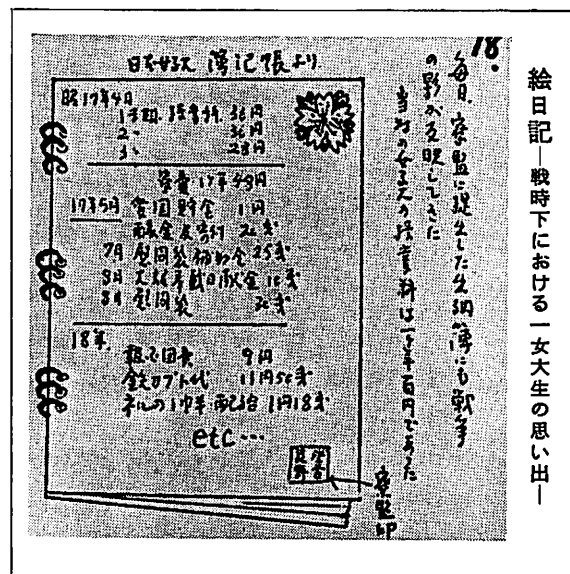 絵日記―戦時下における一女大生の思い出―
18.
毎日、寮監に提出した出納簿にも戦争
の影が反映してきた
当時の女子大の授業料は一ヶ年百円であった
日本女子大 簿記帳より
昭17年4月
1学期、授業料、36円
2〃 36円
3〃 28円
寮費17年49円
17年5月 貯金 1円
寄付
7月 慰問袋補助金 25銭
8月 大詔奉戴日献金 10銭
8月 慰問袋
18年.
報国団費 9円
鉄カブト代 11円50銭
ネルの1巾半 配給 1円18銭
etc…
寮監印